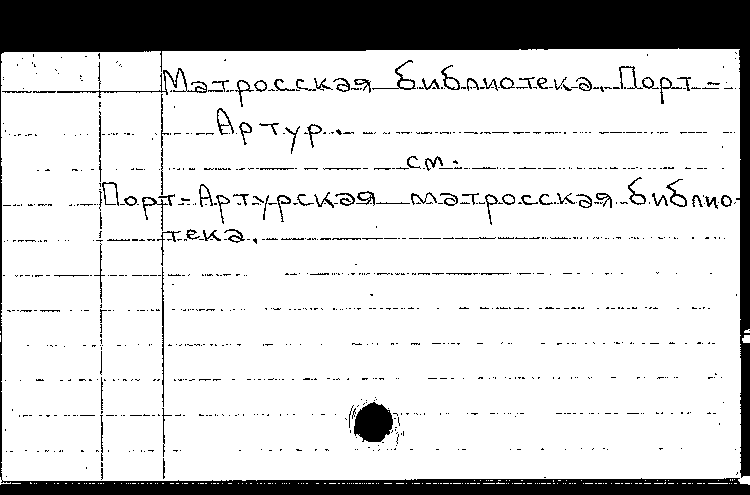 Матросская библиотека. Порт-
Артур.
см.
Порт-Артурская матросская библио-
тека.